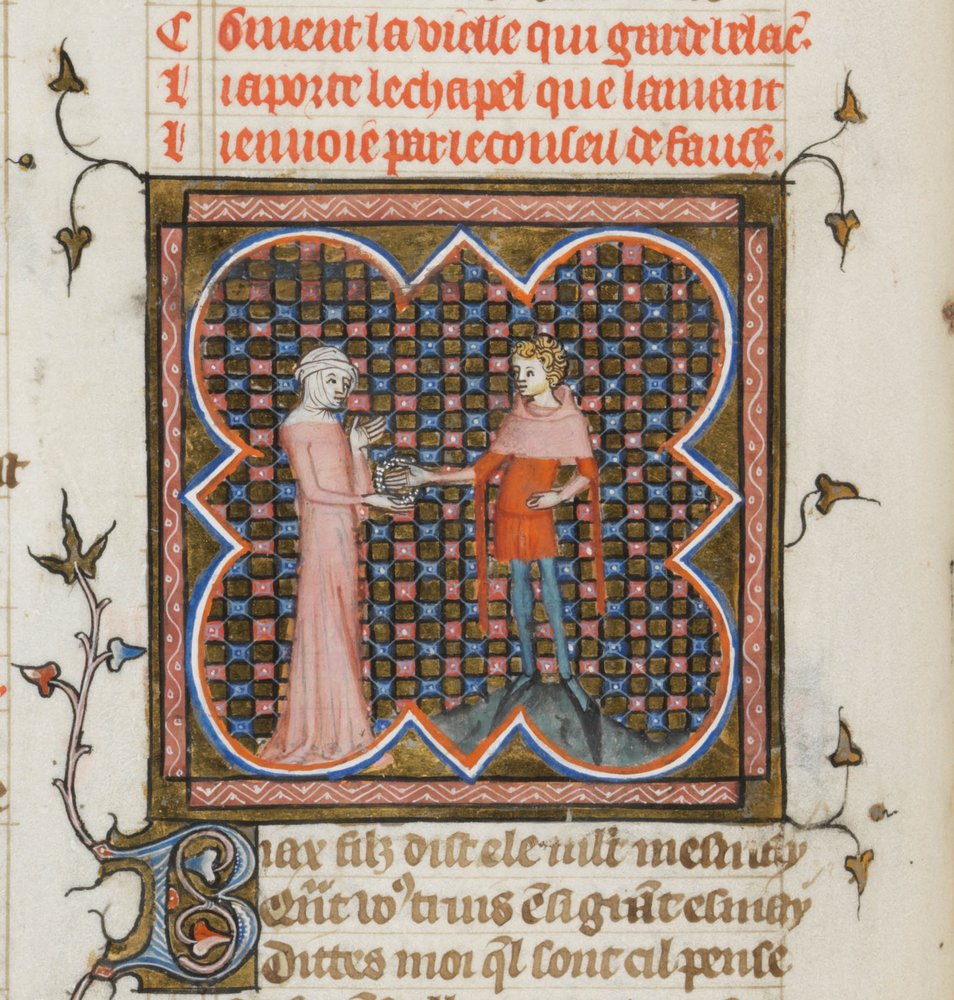 Coment la vielle qui garde belac̄.
Li aporte le chapel que lamant
Li enuoiē par le conseil de fausse.
Biax filz dist ele nult mesmay
Qūt voꝰ truis ē si grāt esmay
Dittes moi q̄l sont cil pense